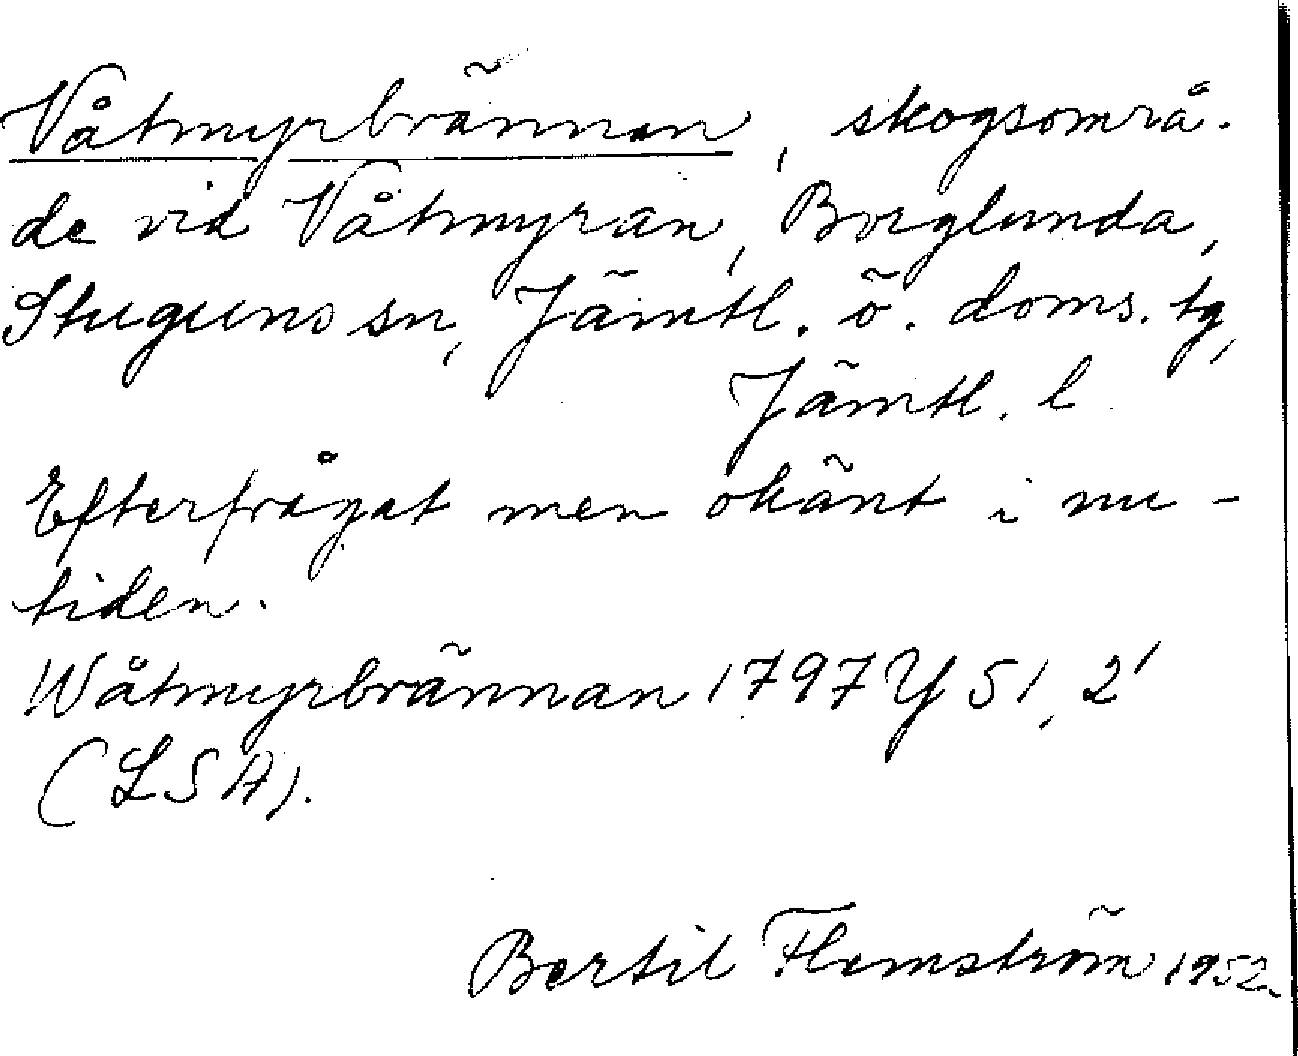 Våtmyrbrännan, skogsområ-
de vid Våtmyran, Borglunda,
Stuguns sn, Jämtl. ö. doms. tg,
Jämtl. l
Efterfrågat men okänt i nu-
tiden.
Wåtmyrbrännan 1797 Y 51, 2'
(LSA).
Bertil Flemström 1952.